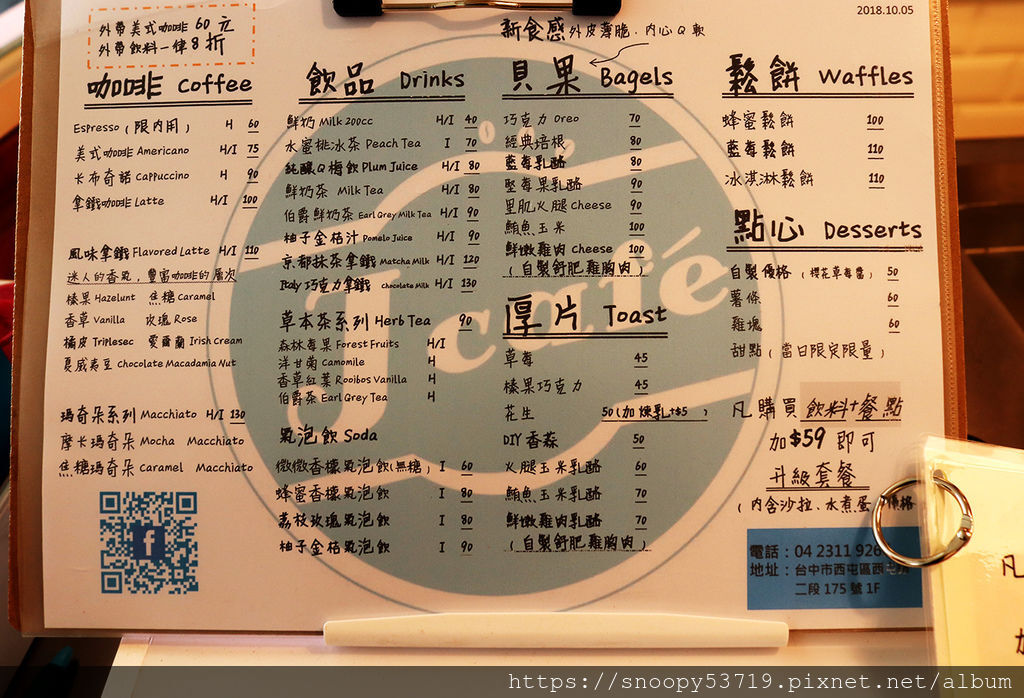 2018.10.05
外帶美式咖啡 60 元
外帶飲料一律8折
咖啡 Coffee
Espresso (限內用) H 60
美式咖啡 Americano H/I 75
卡布奇諾 Cappuccino H 90
拿鐵咖啡 Latte H/I 100
風味拿鐵 Flavored Latte H/I 110
迷人的香氣,豐富咖啡的層次
榛果 Hazelunt 焦糖 Caramel
香草 Vanilla 玫瑰 Rose
橘皮 Triplesec 愛爾蘭 Irish Cream
夏威夷豆 Chocolate Macadamia Nut
瑪奇朵系列 Macchiato H/I 130
摩卡瑪奇朵 Mocha Macchiato
焦糖瑪奇朵 Caramel Macchiato
飲品 Drinks
鮮奶 Milk 200cc H/I 40
水蜜桃冰茶 Peach Tea I 70
純釀Q梅飲 Plum Juice H/I 80
鮮奶茶 Milk Tea H/I 80
伯爵鮮奶茶 Earl Grey Milk Tea H/I 90
柚子金桔汁 Pomelo Juice H/I 90
京都抹茶拿鐵 Matcha Milk H/I 120
Italy 巧克力拿鐵 Chocolate Milk H/I 130
草本茶系列 Herb Tea 90
森林莓果 Forest Fruits H/I
洋甘菊 Camomile H
香草紅葉 Rooibos Vanilla H
伯爵茶 Earl Grey Tea H
氣泡飲 Soda
微微香檬氣泡飲(無糖) I 60
蜂蜜香檬氣泡飲 I 80
荔枝玫瑰氣泡飲 I 80
柚子金桔氣泡飲 I 90
新食感 外皮薄脆.內心Q軟
貝果 Bagels
巧克力 Oreo 70
經典培根 80
藍莓乳酪 80
堅莓果乳酪 90
里肌火腿 Cheese 90
鮪魚玉米 100
鮮嫩雞肉 Cheese 100
(自製舒肥雞胸肉)
厚片 Toast
草莓 45
榛果巧克力 45
花生 50(加煉乳+$5)
DIY 香蒜 50
火腿玉米乳酪 60
鮪魚玉米乳酪 70
鮮嫩雞肉乳酪 70
(自製舒肥雞胸肉)
鬆餅 Waffles
蜂蜜鬆餅 100
藍莓鬆餅 110
冰淇淋鬆餅 110
點心 Desserts
自製優格 (櫻花草莓醬) 50
薯條 60
雞塊 60
甜點(當日限定限量)
凡購買 飲料+餐點
加$59 即可
升級套餐
(內含沙拉.水煮蛋 優格
電話:04 2311 926
地址:台中市西屯區西屯路
二段 175 號 1F
J café
凡
加
https://snoopy53719.pixnet.net/album